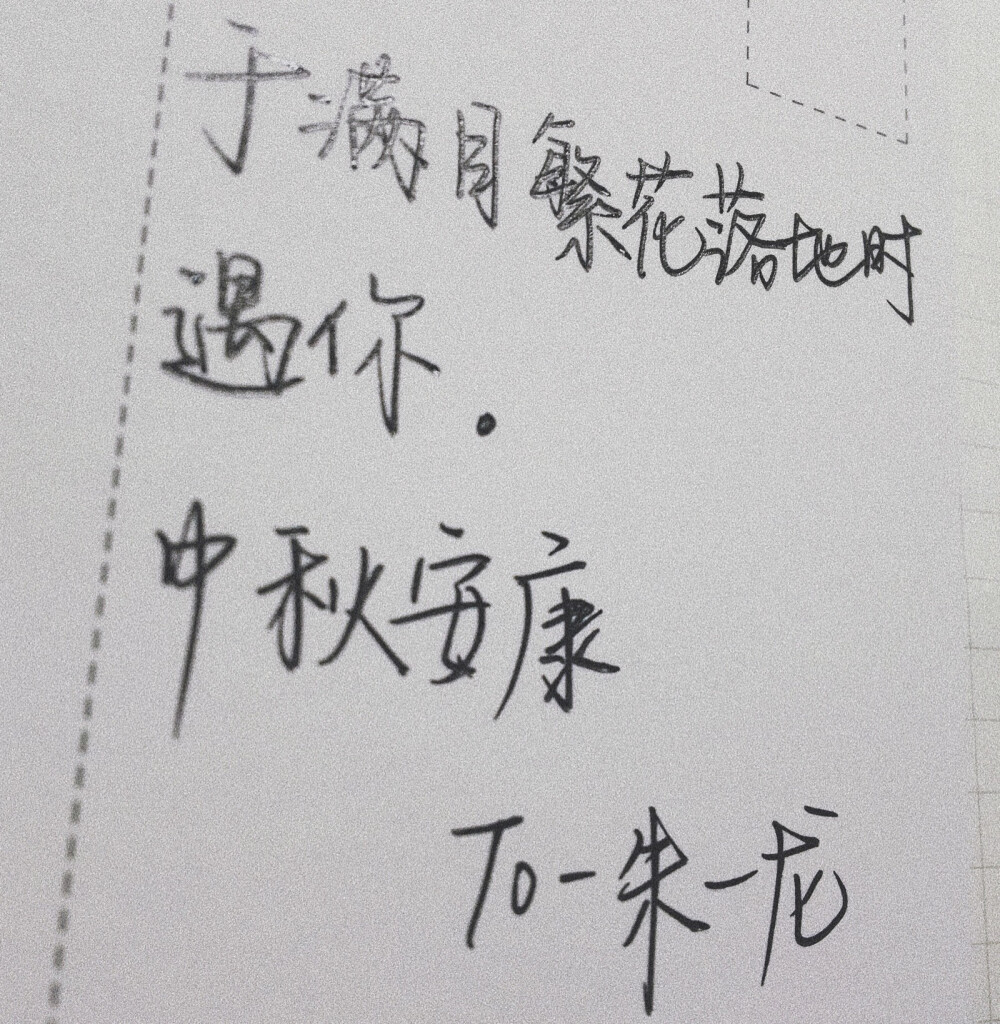 于满目繁花落地时
遇你.
中秋安康
To-朱一龙